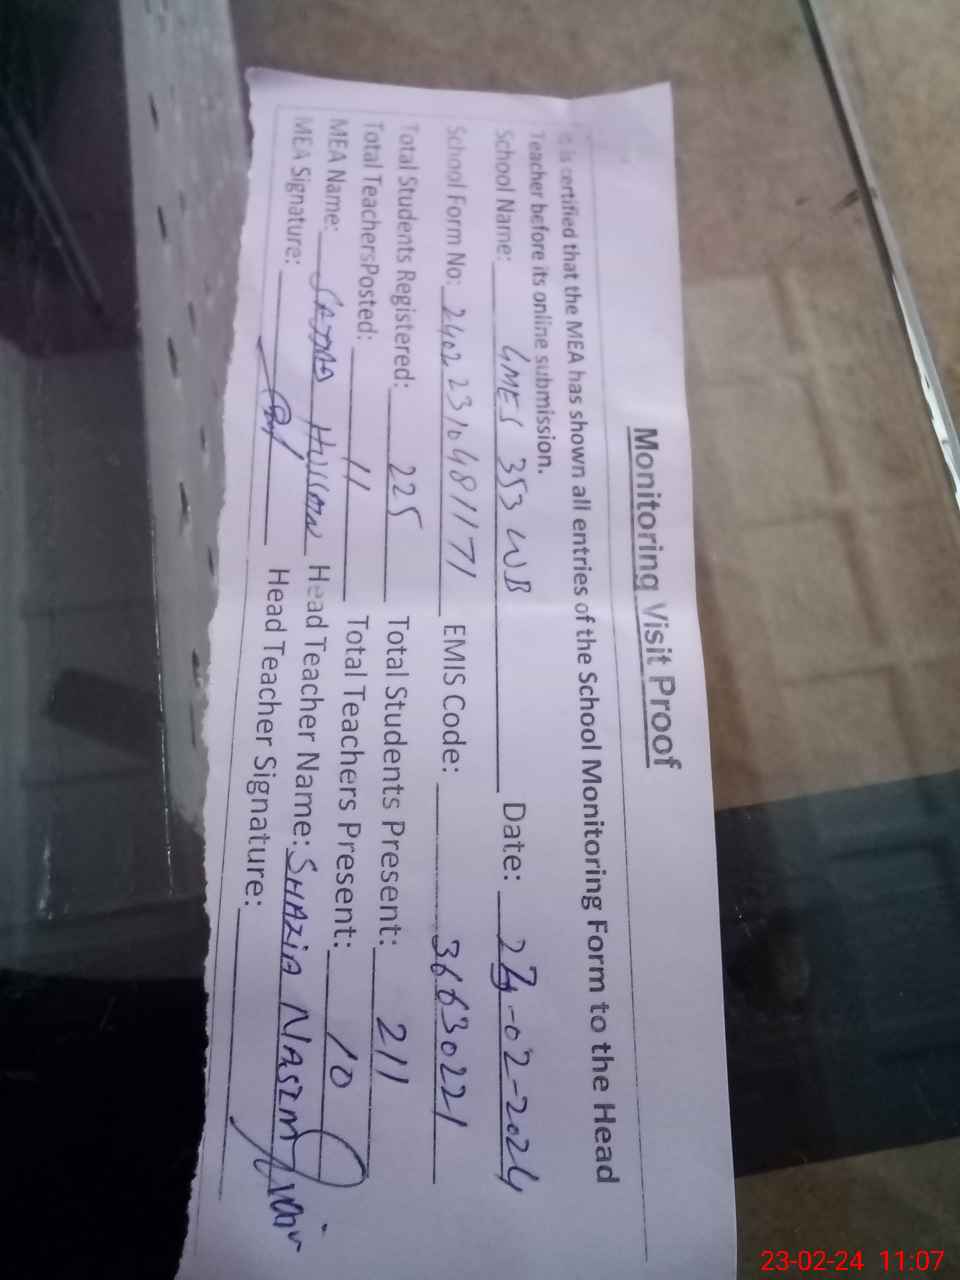 Monitoring Visit Proof
It is certified that the MEA has shown all entries of the School Monitoring Form to the Head
Teacher before its online submission.
School Name: GMES 353 WB Date: -02-2024
School Form No: 240223104811171 EMIS Code: 36630221
Total Students Registered: 225 Total Students Present: 211
Total TeachersPosted: 11 Total Teachers Present: 10
MEA Name: SAJJAD HUSSAIN Head Teacher Name: SHAZIA NASEM
MEA Signature: Head Teacher Signature:
23-02-24 11:07